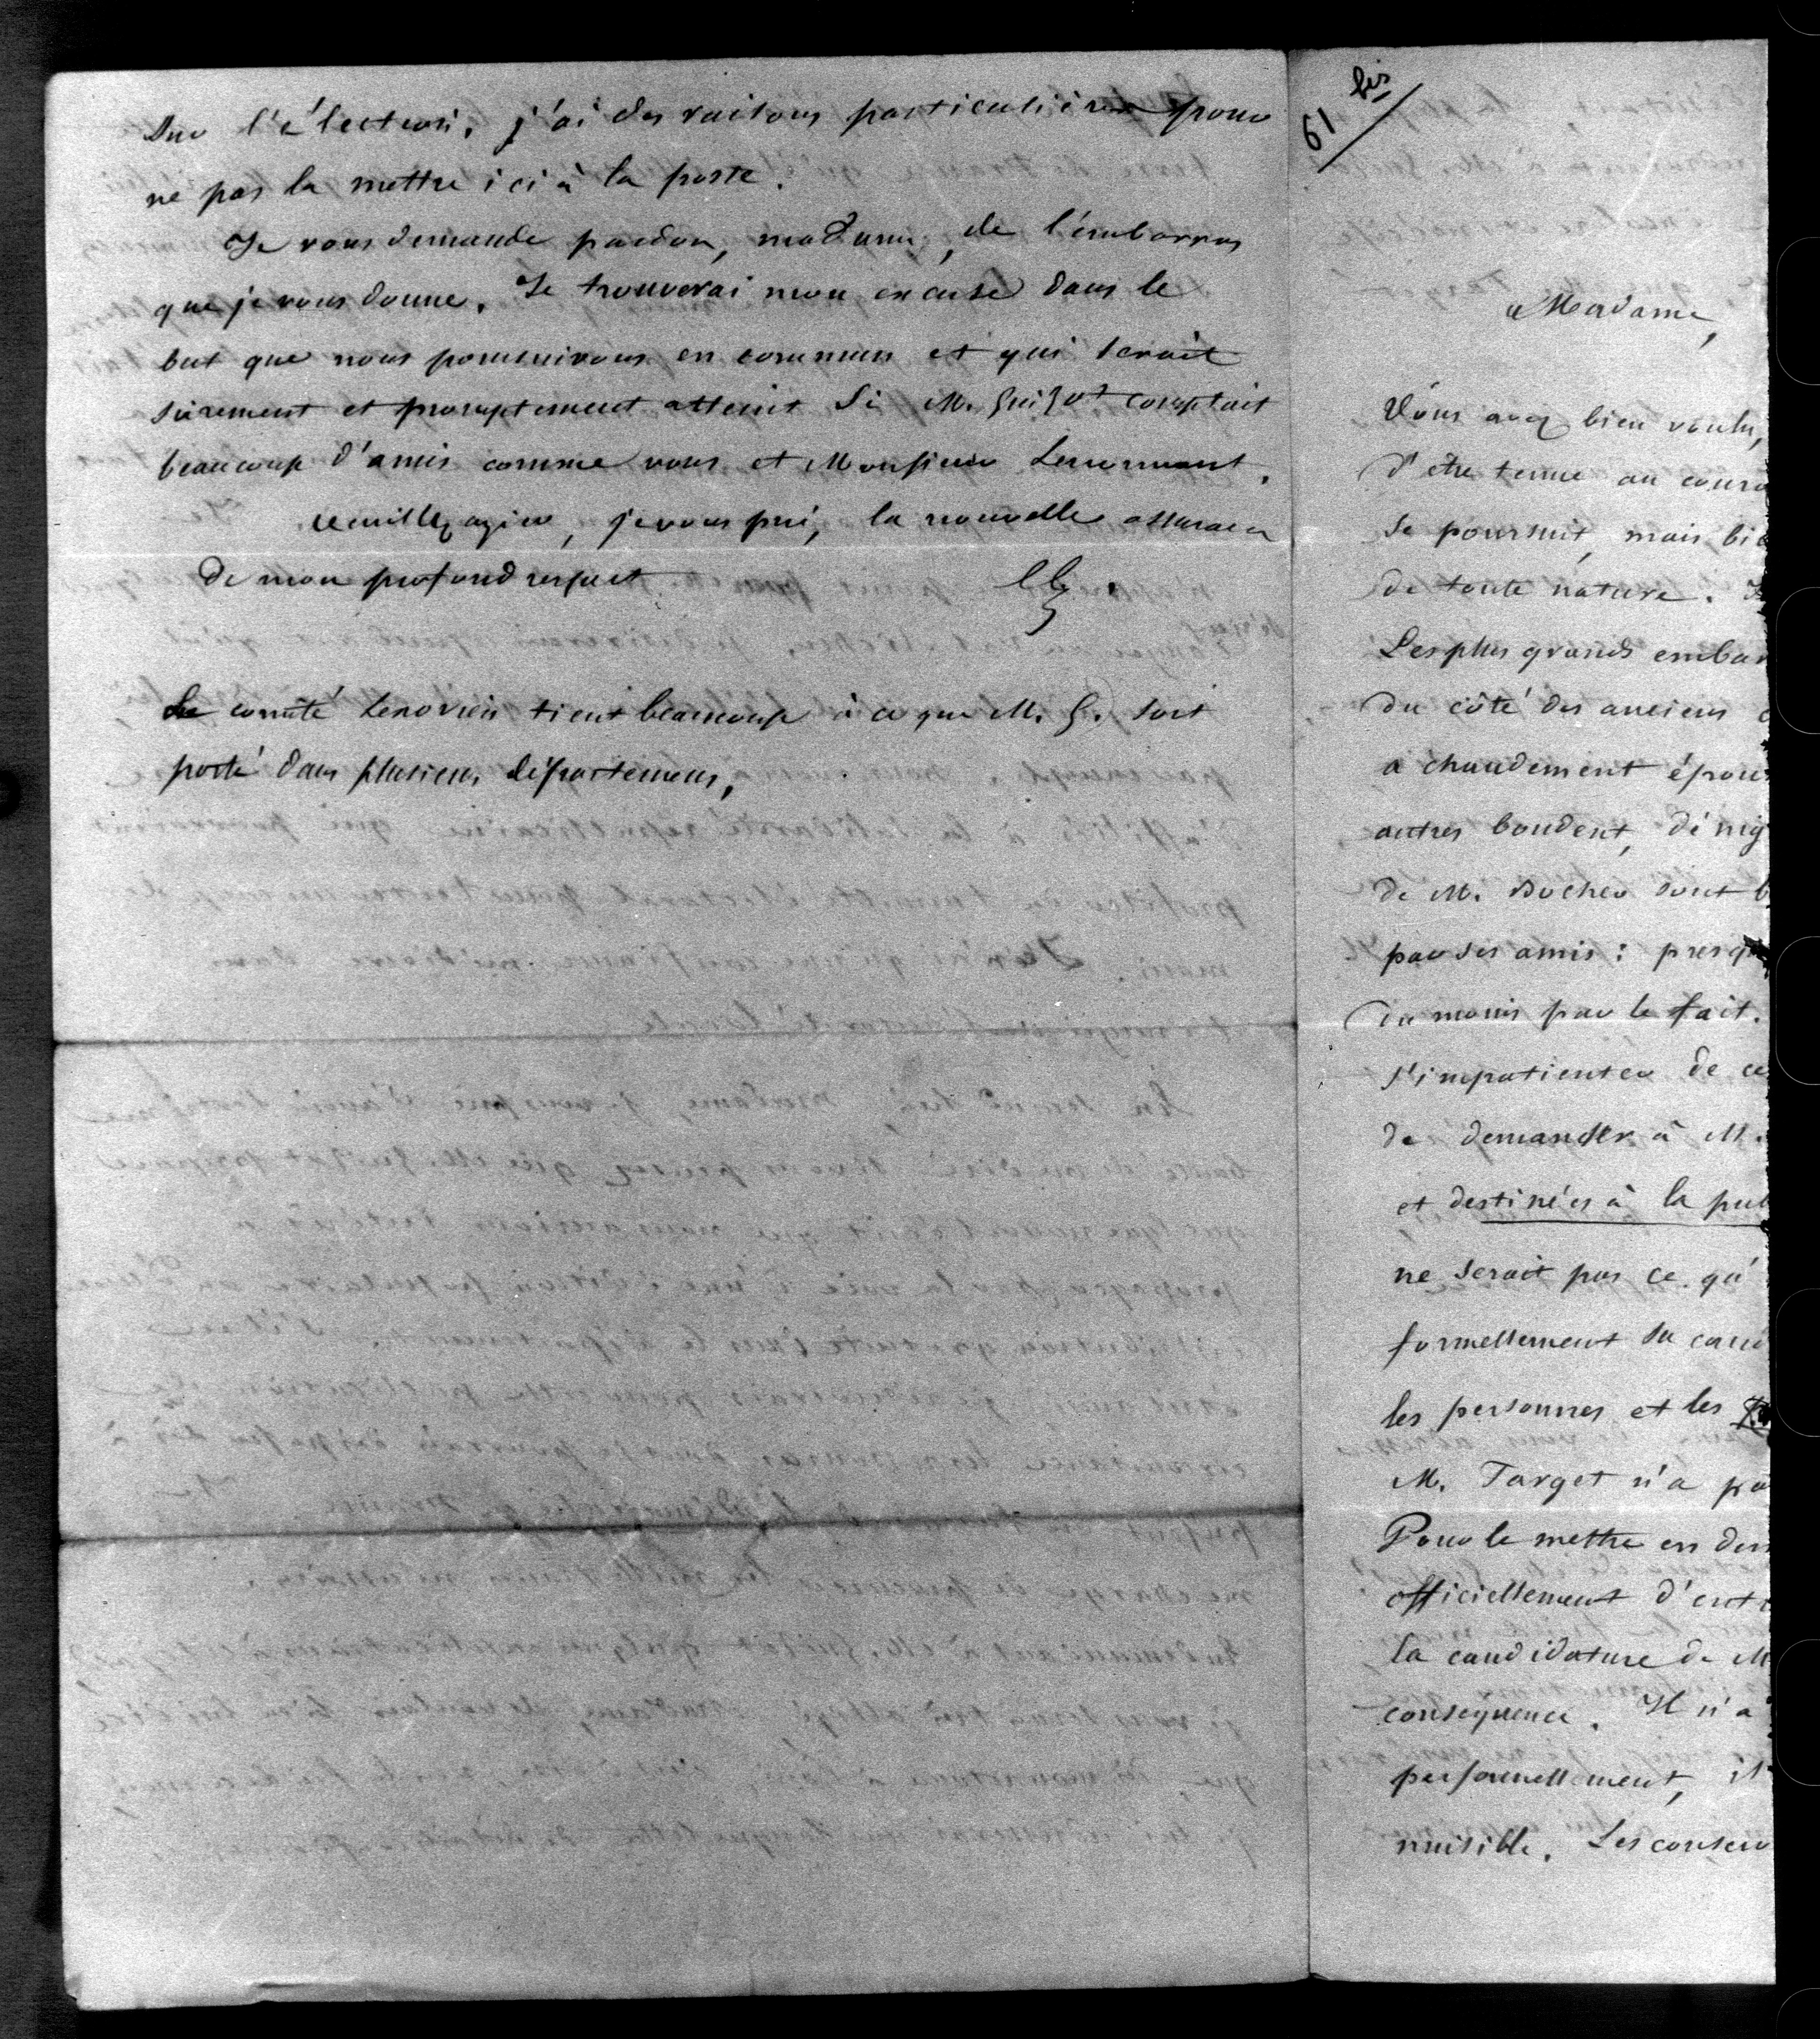 sur l'élection. j'ai des raisons particulières pour
ne pas la mettre ici à la poste.
Je vous demande pardon, madame, de l'embarras
que je vous donne. Je trouverai mon excuse dans le
but que nous poursuivons en commun et qui serait
sûrement et promptement atteint si M. Guizot comptait
beaucoup d'amis comme vous et Monsieur Lenormant.
veuillez agréer, je vous prie, la nouvelle assurance
de mon profond respect
Le comité lexovien tient beaucoup à ce que M. G. soit
porté dans plusieurs départemens,
61 bis
Madame,
Vous avez bien voulu,
d'être tenue au coura
se poursuit, mais bie
de toute nature.
Les plus grands embar
du côté des anciens
a chaudement épous
autres boudent, dénig
de M. Bocher sont b
par ses amis : presq
du moins par le fait.
s'impatienter de ce
de demander à M.
et destinées à la pub
ne serait pas ce qu'
formellement sa cand
les personnes et les
M. Target n'a pa
Pour le mettre en dem
officiellement d'entr
la candidature de M
conséquence. Il n'a
personnellement, il
nuisible. Les conserv